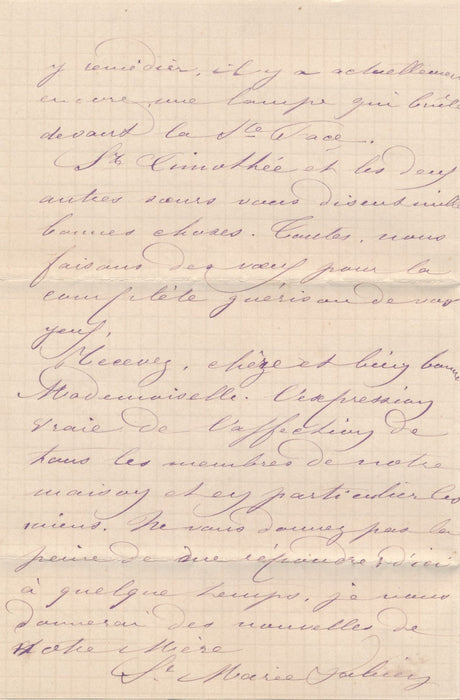 y remédier, il y a actuellement
encore une lampe qui brûle
devant la Ste Face.
Sr Timothée et les deux
autres sœurs vous disent mille
bonnes choses. Toutes, nous
faisons des vœux pour la
complète guérison de vos
yeux.
Recevez, chère et bien bonne
Mademoiselle. l'expression
vraie de l'affection de
tous les membres de notre
maison et en particulier les
miens. Ne vous donnez pas la
peine de me répondre; d'ici
à quelque temps, je vous
donnerai des nouvelles de
Notre Mère
Sr Marie